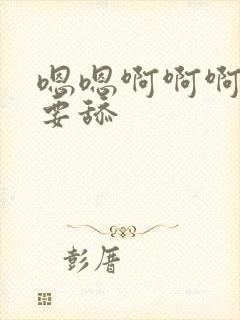 嗯嗯啊啊啊
要舔
彭厝